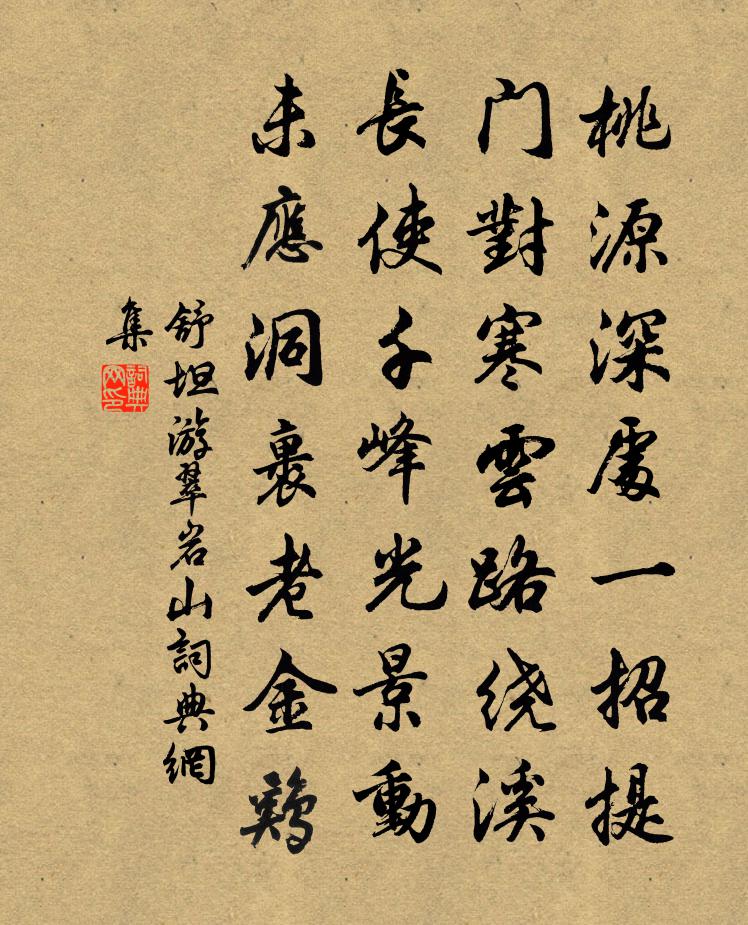 桃源深處一招提
门對寒雲路绕溪
長使千峰光景動
未應洞裏老金鷄
舒坦游翠岩山詞典網
集
詞典网印